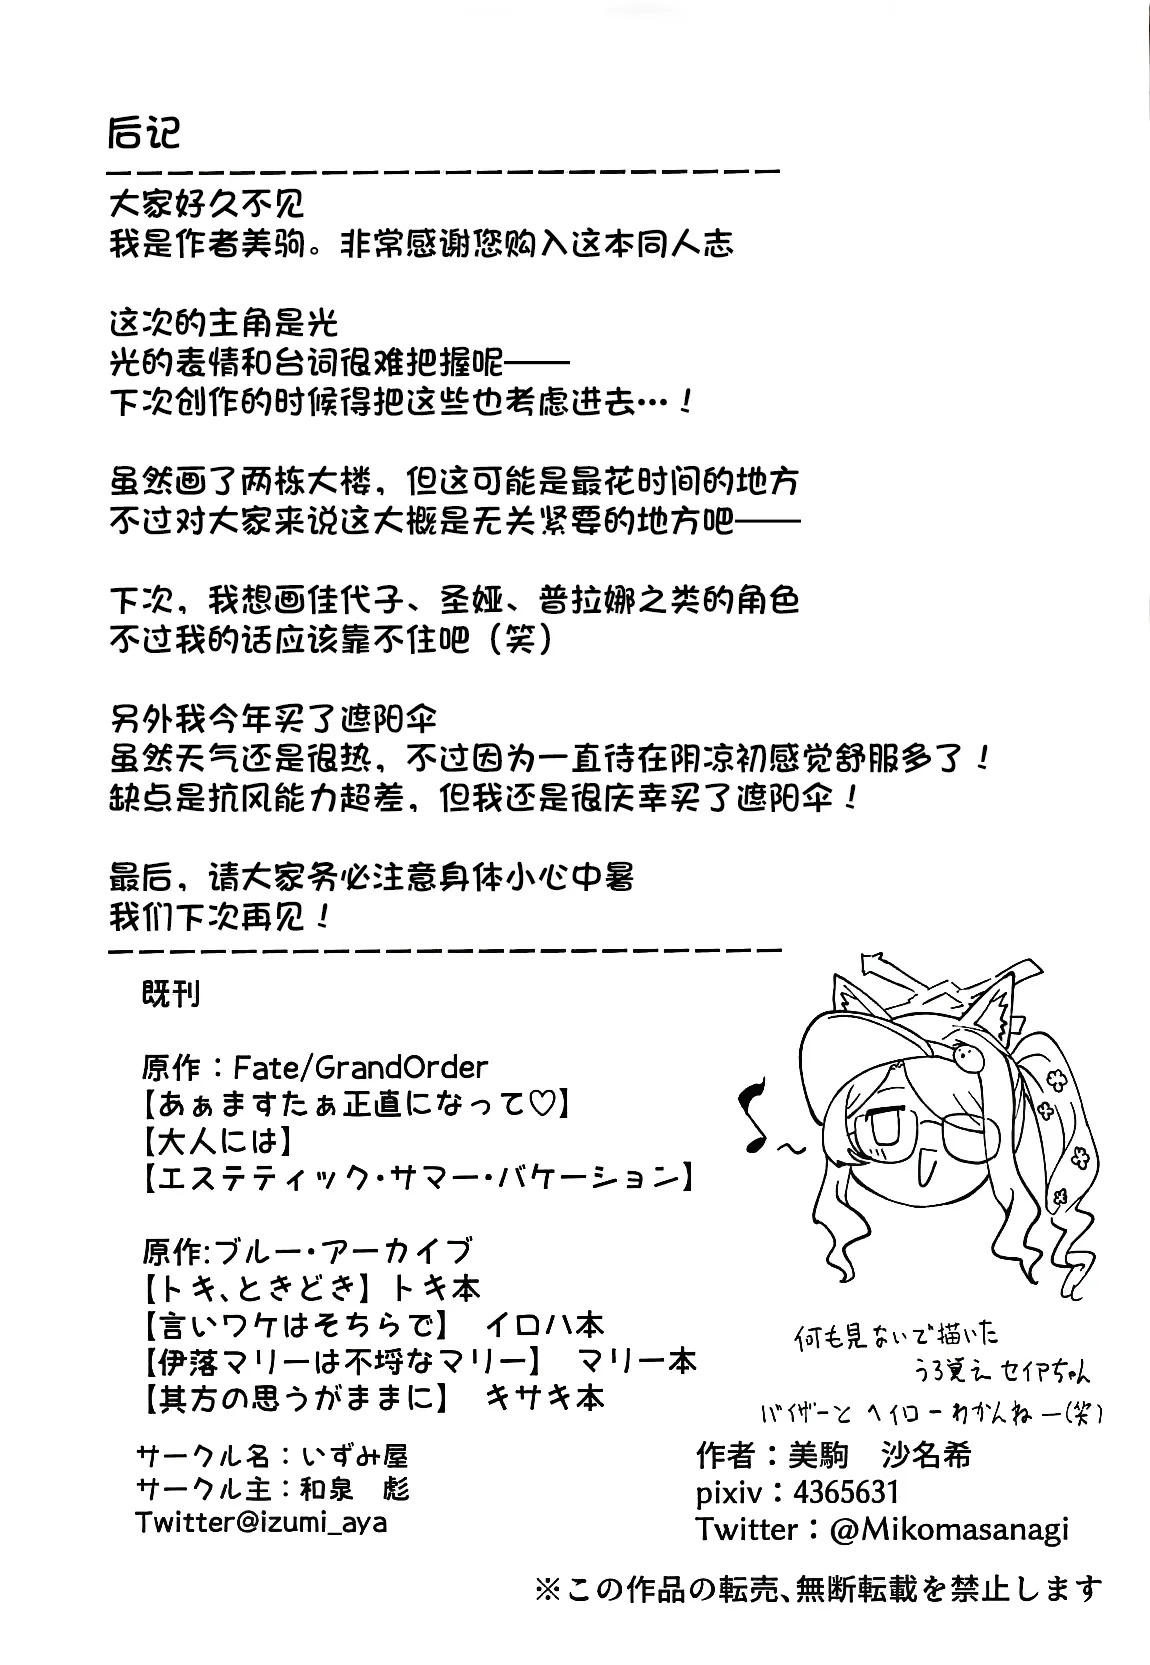 后记
大家好久不见
我是作者美驹。非常感谢您购入这本同人志
这次的主角是光
光的表情和台词很难把握呢——
下次创作的时候得把这些也考虑进去…！
虽然画了两栋大楼，但这可能是最花时间的地方
不过对大家来说这大概是无关紧要的地方吧——
下次，我想画佳代子、圣娅、普拉娜之类的角色
不过我的话应该靠不住吧（笑）
另外我今年买了遮阳伞
虽然天气还是很热，不过因为一直待在阴凉初感觉舒服多了！
缺点是抗风能力超差，但我还是很庆幸买了遮阳伞！
最后，请大家务必注意身体小心中暑
我们下次再见！
既刊
原作：Fate/GrandOrder
【あぁますたぁ正直になって♡】
【大人には】
【エステティック・サマー・バケーション】
原作:ブルー・アーカイブ
【トキ、ときどき】トキ本
【言いワケはそちらで】　イロハ本
【伊落マリーは不埒なマリー】　マリー本
【其方の思うがままに】　キサキ本
何も見ないで描いた
うろ覚え セイアちゃん
バイザーと ヘイローわかんねー(笑)
サークル名：いずみ屋
サークル主：和泉　彪
Twitter@izumi_aya
作者：美駒　沙名希
pixiv：4365631
Twitter：@Mikomasanagi
※この作品の転売、無断転載を禁止します